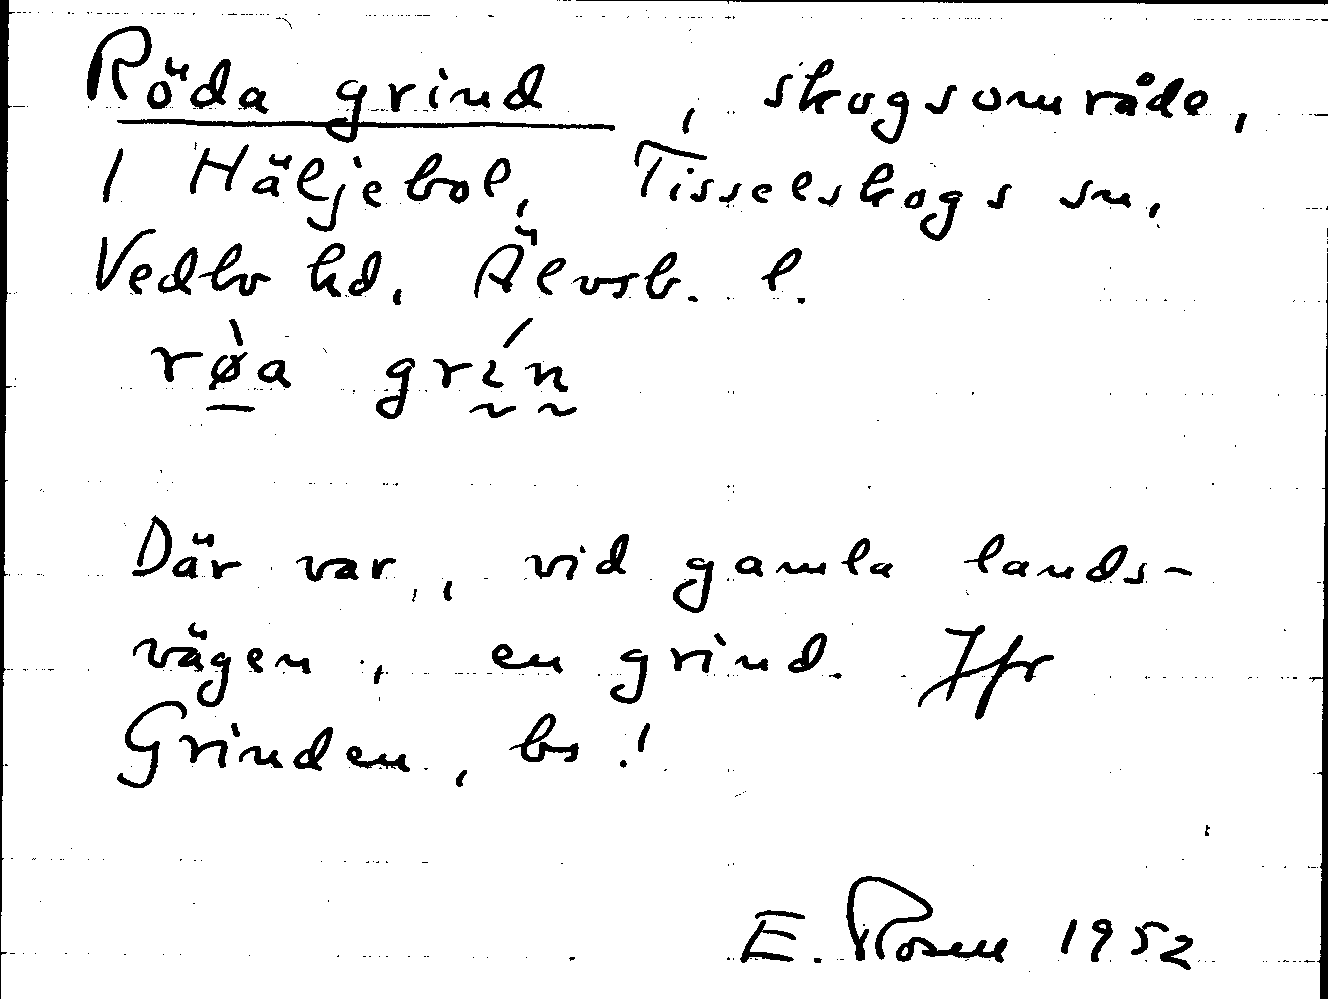 Röda grind, skogsområde,
1 Häljebol, Tisselskogs sn,
Vedbo hd. Älvsb. l.
rø̀a grín
Där var, vid gamla lands-
vägen, en grind. Jfr
Grinden, bs.!
E. Rosen 1952